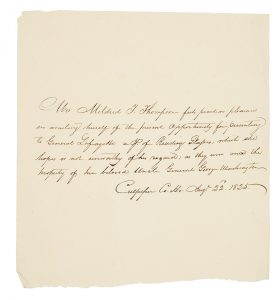 Mrs Mildred T. Thompson feels peculiar pleasure
in availing herself of the present opportunity for presenting
to General Lafayette a of Reading Glasses, which she
hopes is not unworthy of his regard, as they were once the
property of her beloved Uncle General George Washington
Culpeper Co. Va. Augt 22. 1825